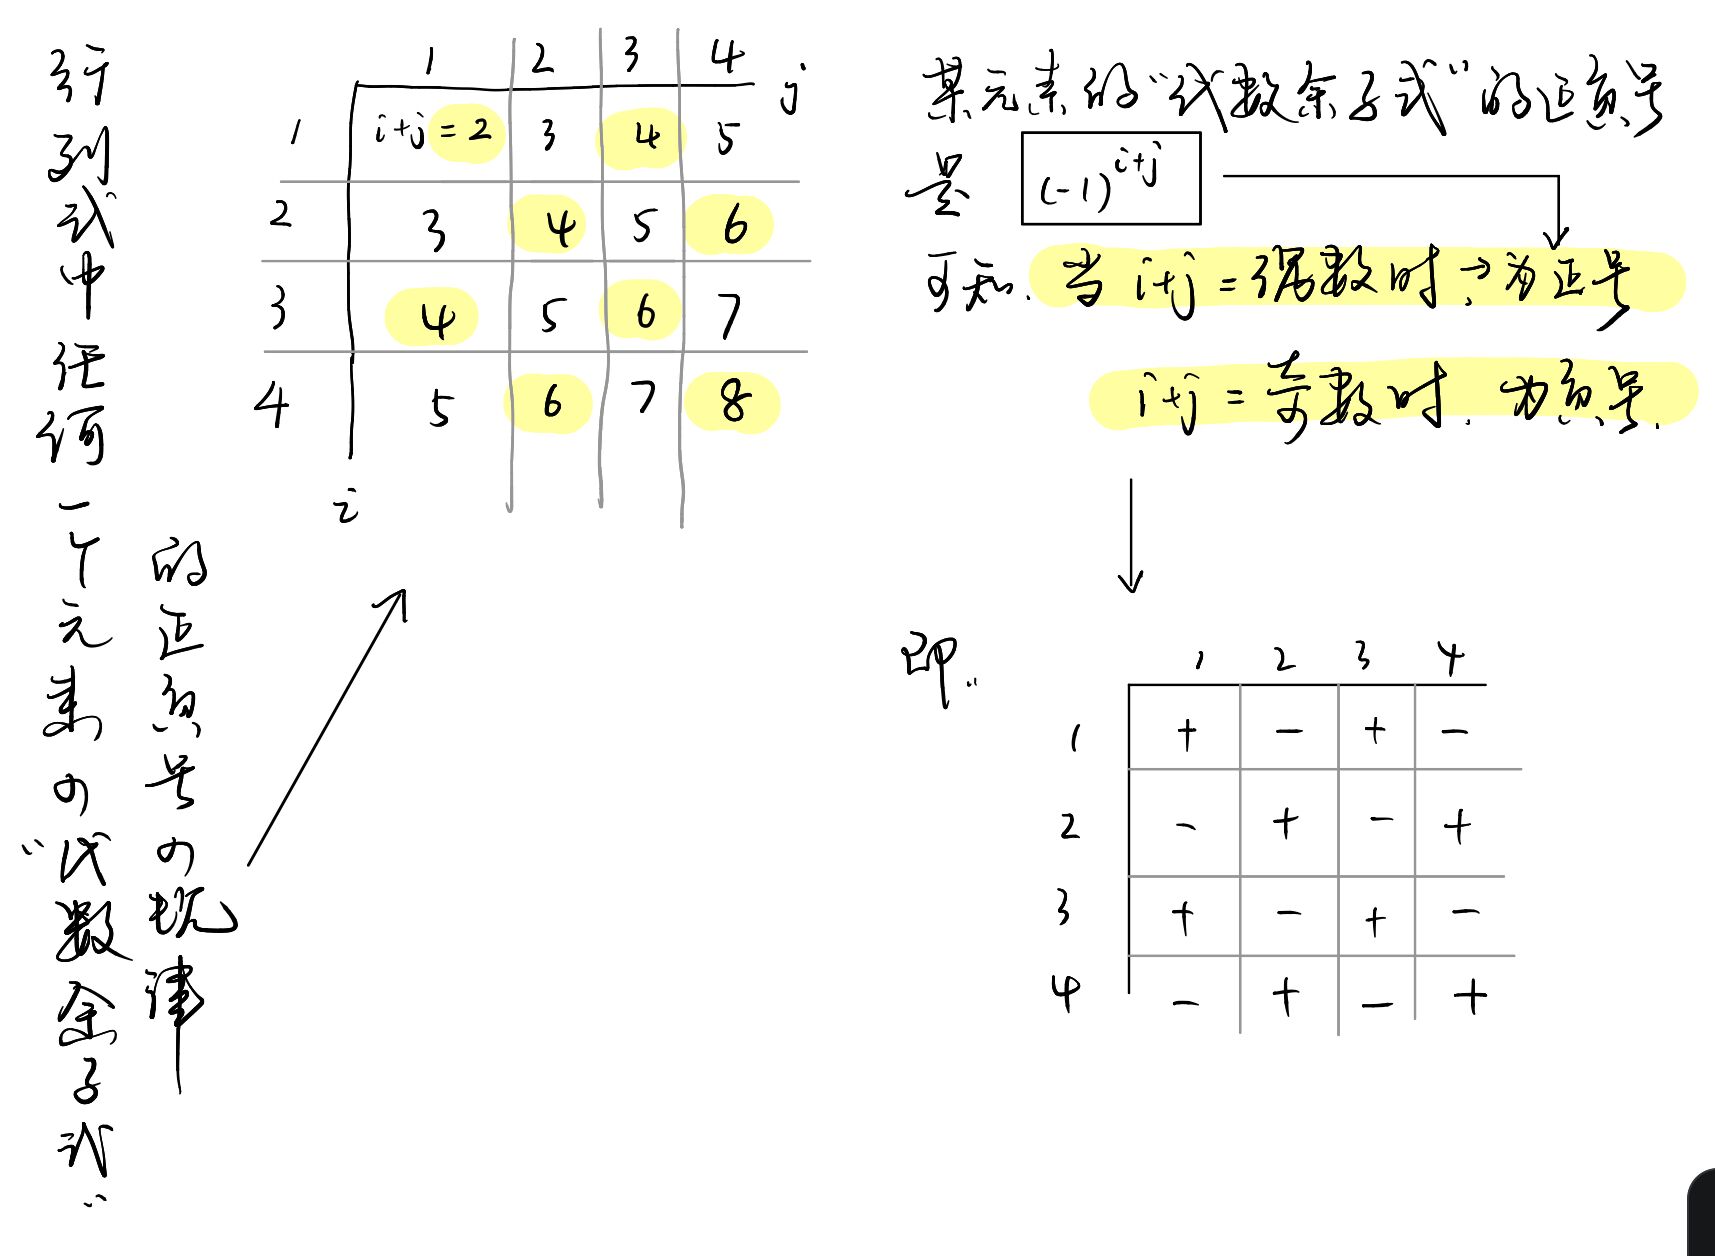 行列式中任何一个元素の“代数余子式”
的正负号の规律
1 2 3 4 j
1 i+j=2 3 4 5
2 3 4 5 6
3 4 5 6 7
4 5 6 7 8
i
某元素的“代数余子式”的正负号
是 (-1)^{i+j}
可知. 当 i+j=偶数时→为正号
i+j=奇数时. 为负号.
即..
1 2 3 4
1 + - + -
2 - + - +
3 + - + -
4 - + - +